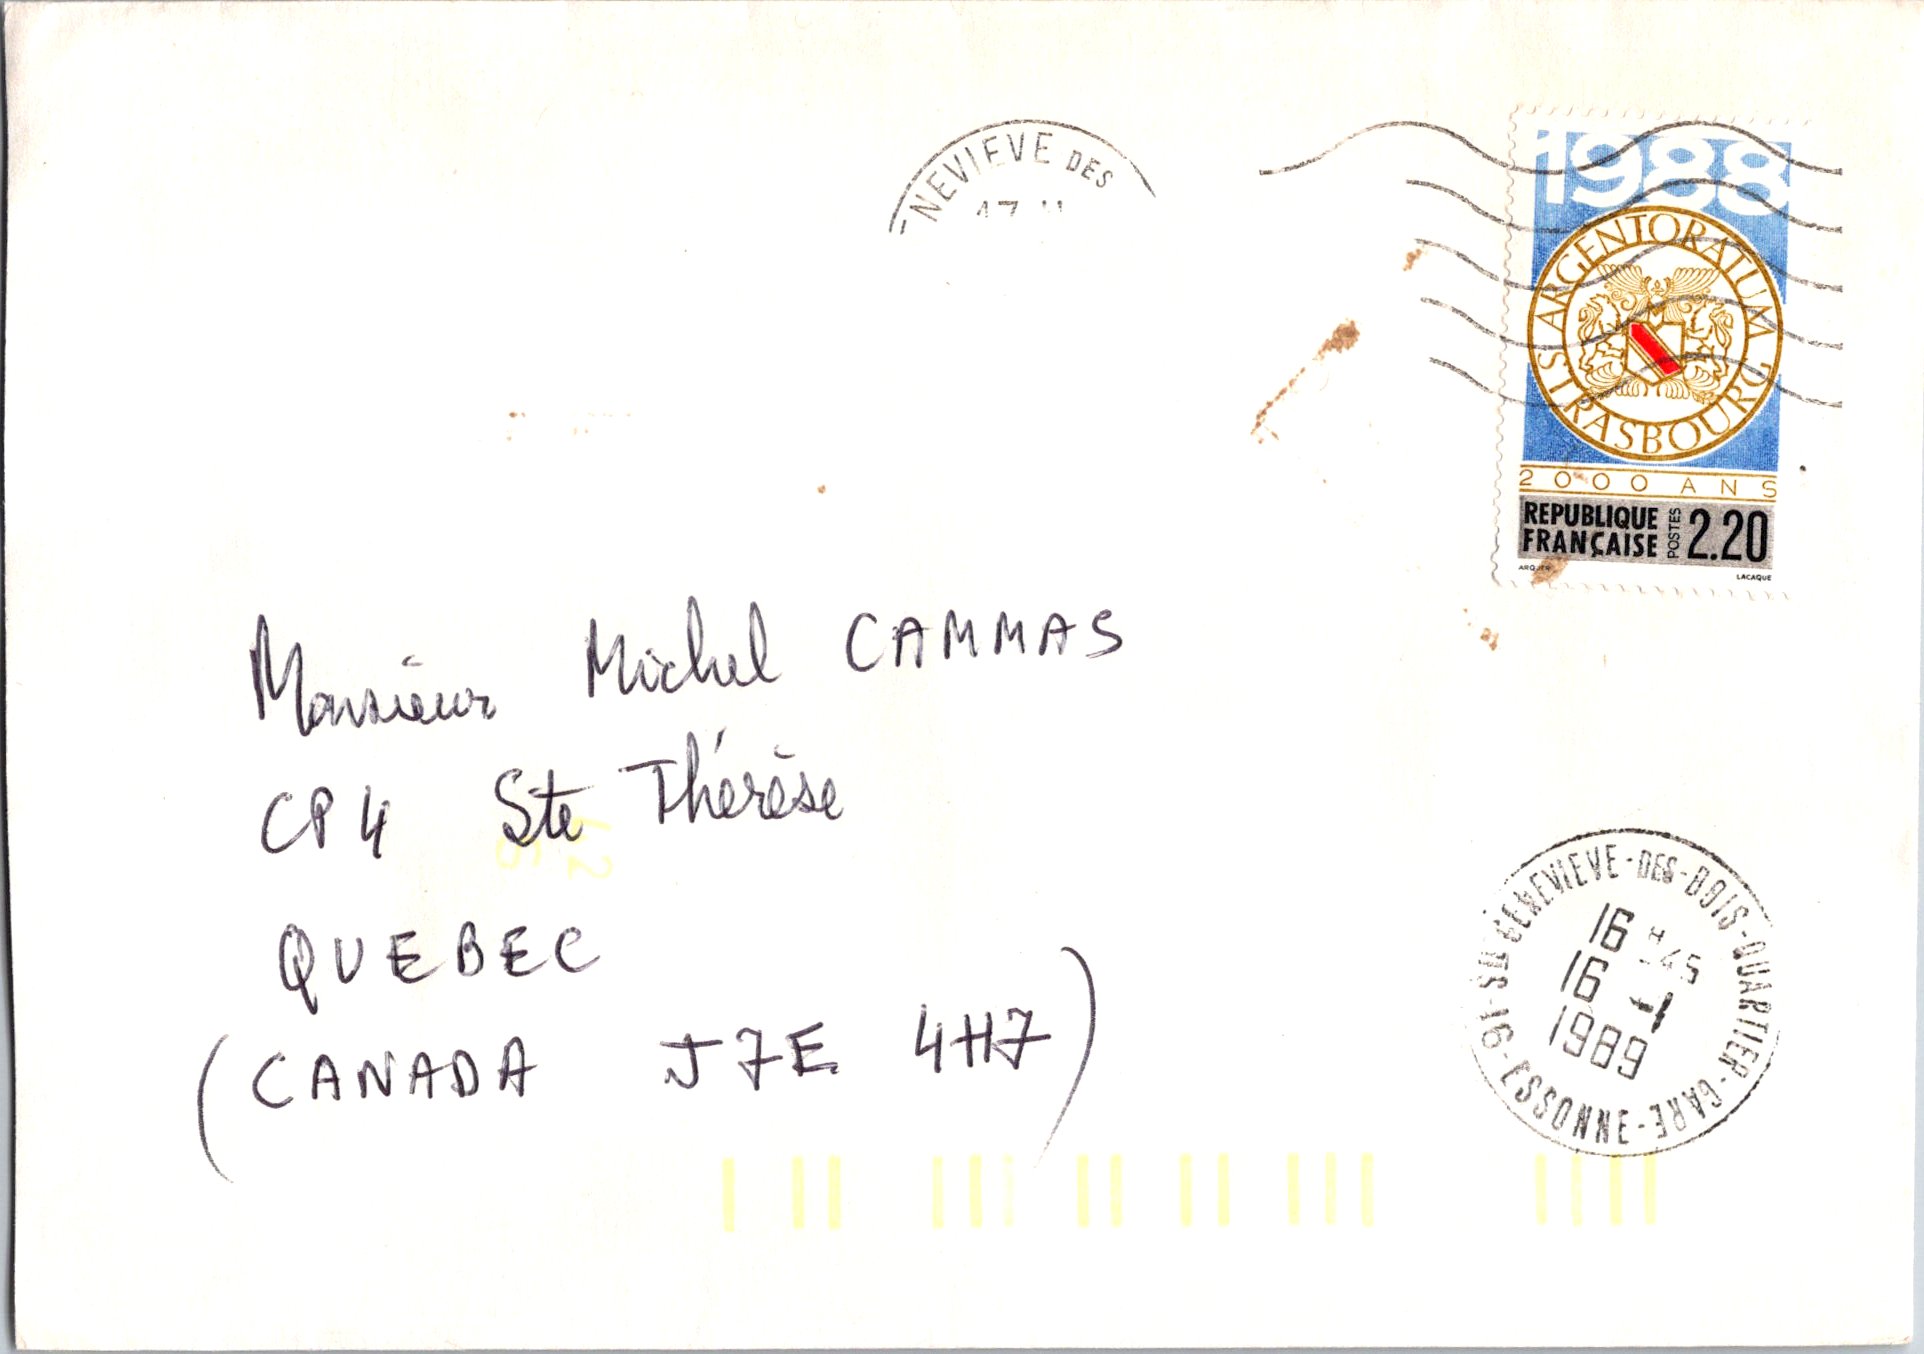 NEVIEVE DES
1988
ARGENTORATUM
STRASBOURG
2000 ANS
REPUBLIQUE
FRANÇAISE
POSTES
2.20
LACAQUE
Monsieur Michel CAMMAS
CP 4 Ste Thérèse
QUEBEC
(CANADA J7E 4H7)
91-STE GENEVIEVE-DES-BOIS-QUARTIER-GARE-ESSONNE-
16 H 45
16 -1
1989